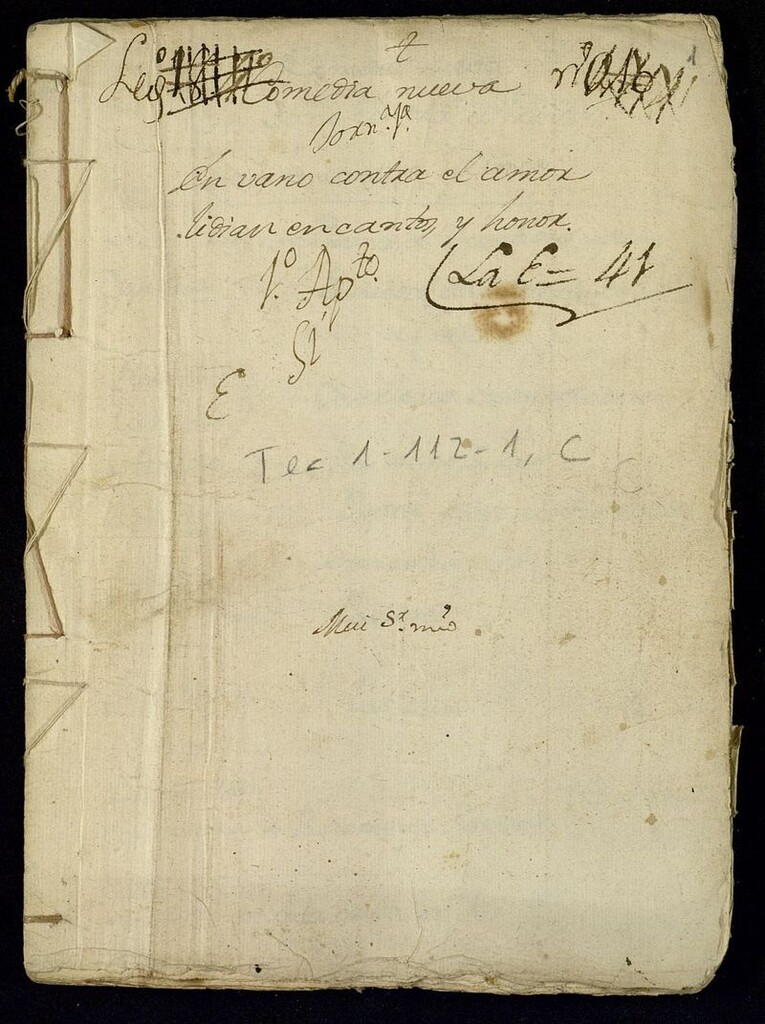 Leg.º Comedia nueva n.º
Jorn.ª 1.ª
En vano contra el amor
lidian encantos, y honor.
1.º Ap.to (La E = 41
E
Tea 1-112-1, C
Mui S.r mio